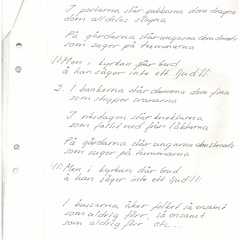 I portarna står gubbarna dom drogna
dom alldeles slagna
På gårdarna står ungarna dom
som suger på tummarna
II: Men i kyrkan står Gud
å han säger inte ett ljud :II
2. I bankerna står damerna dom fina
som stryper svanarna
I riksdagen står knektarna
som fallit ned från läktarna
På gårdarna står ungarna dom
som suger på tummarna
II: Men i kyrkan står Gud
å han säger inte ett ljud :II
I bussarna åker folket så ensamt
som aldrig förr, så ensamt
som aldrig förr etc...